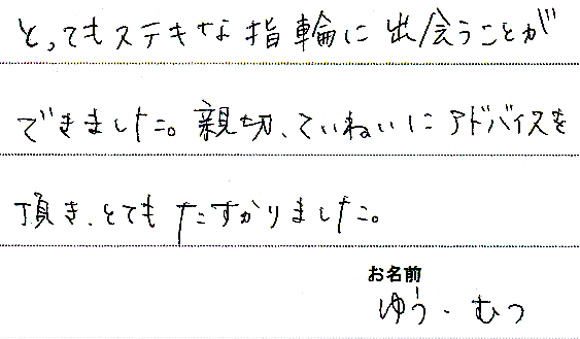 とってもステキな指輪に出会うことが
できました。親切、ていねいにアドバイスを
頂き、とてもたすかりました。
お名前
ゆう・むつ